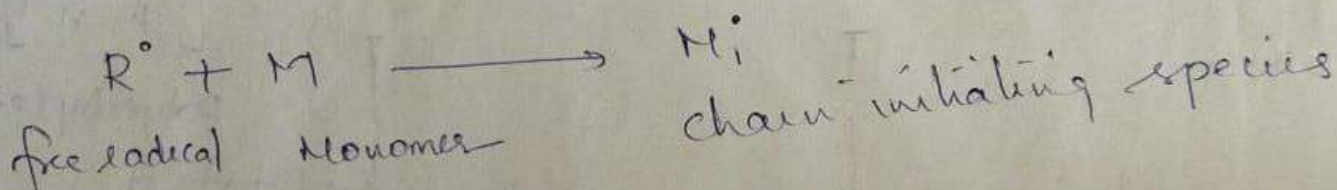 R° + M ⟶ M₁°
free radical Monomer chain initiating species